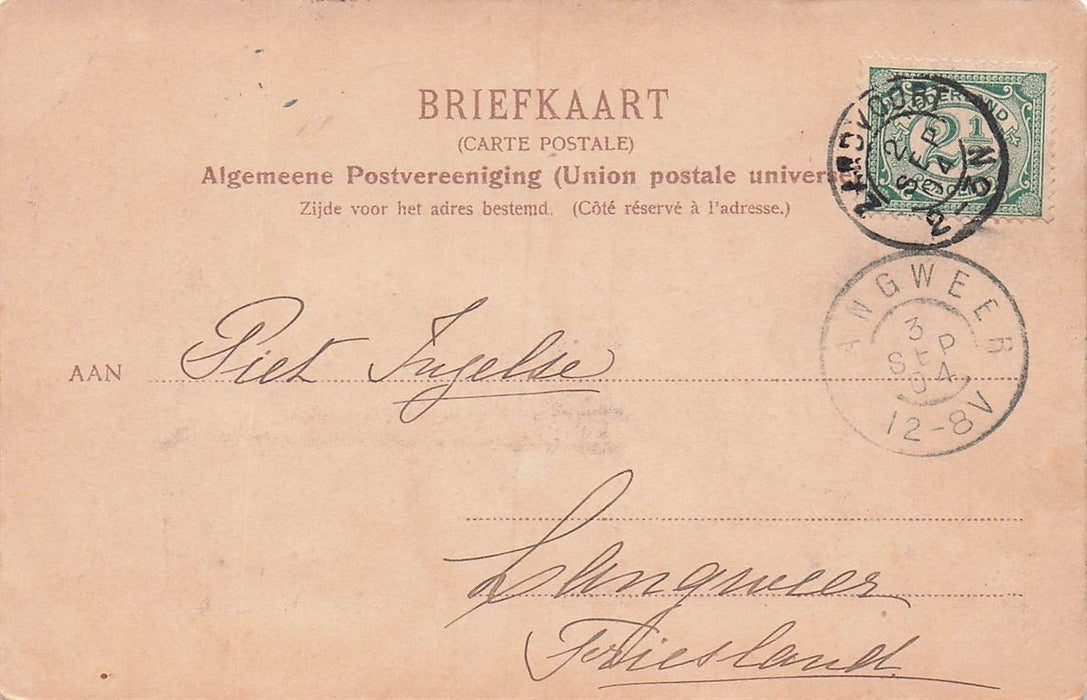 BRIEFKAART
(CARTE POSTALE)
Algemeene Postvereeniging (Union postale univers
Zijde voor het adres bestemd. (Côté réservé à l'adresse.)
2½
CENT
2 SEP 4
ANGWEER
3 SEP 04
12-8V
AAN Piet Ingelse
Langweer
Friesland